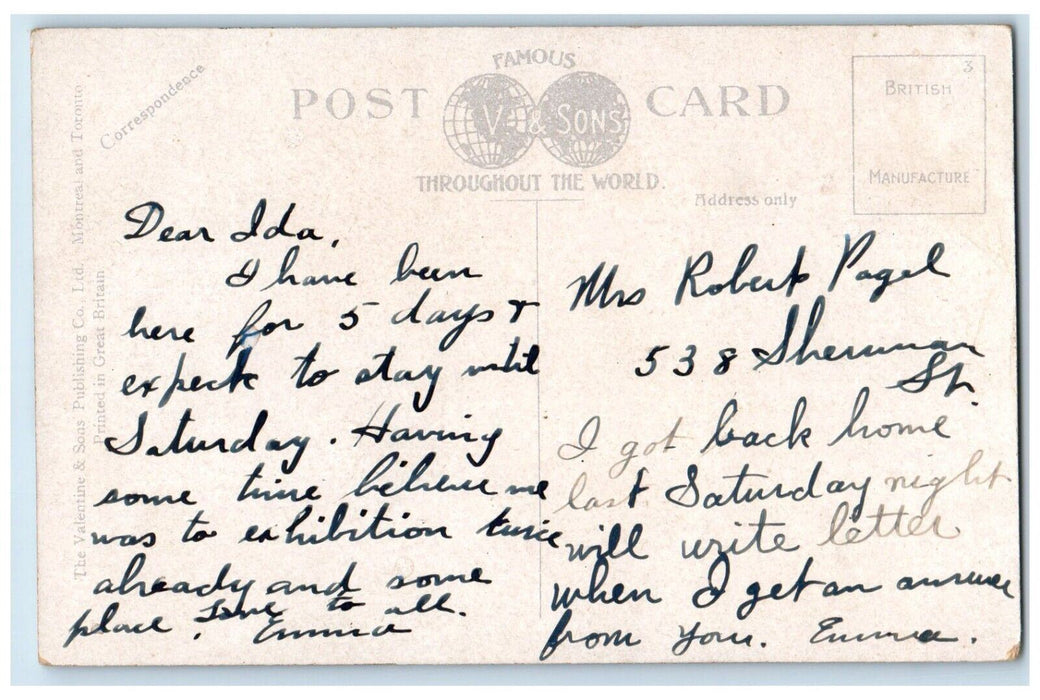 FAMOUS
POST CARD
V. & SONS
THROUGHOUT THE WORLD.
Correspondence
Address only
3
BRITISH
MANUFACTURE
The Valentine & Sons Publishing Co., Ltd. Montreal and Toronto
Printed in Great Britain
Dear Ida,
I have been
here for 5 days &
expect to stay until
Saturday. Having
some time believe me
was to exhibition twice
already and some
place. Love to all.
Emma
Mrs Robert Pagel
538 Sherman
St.
I got back home
last Saturday night
will write letter
when I get an answer
from you. Emma.